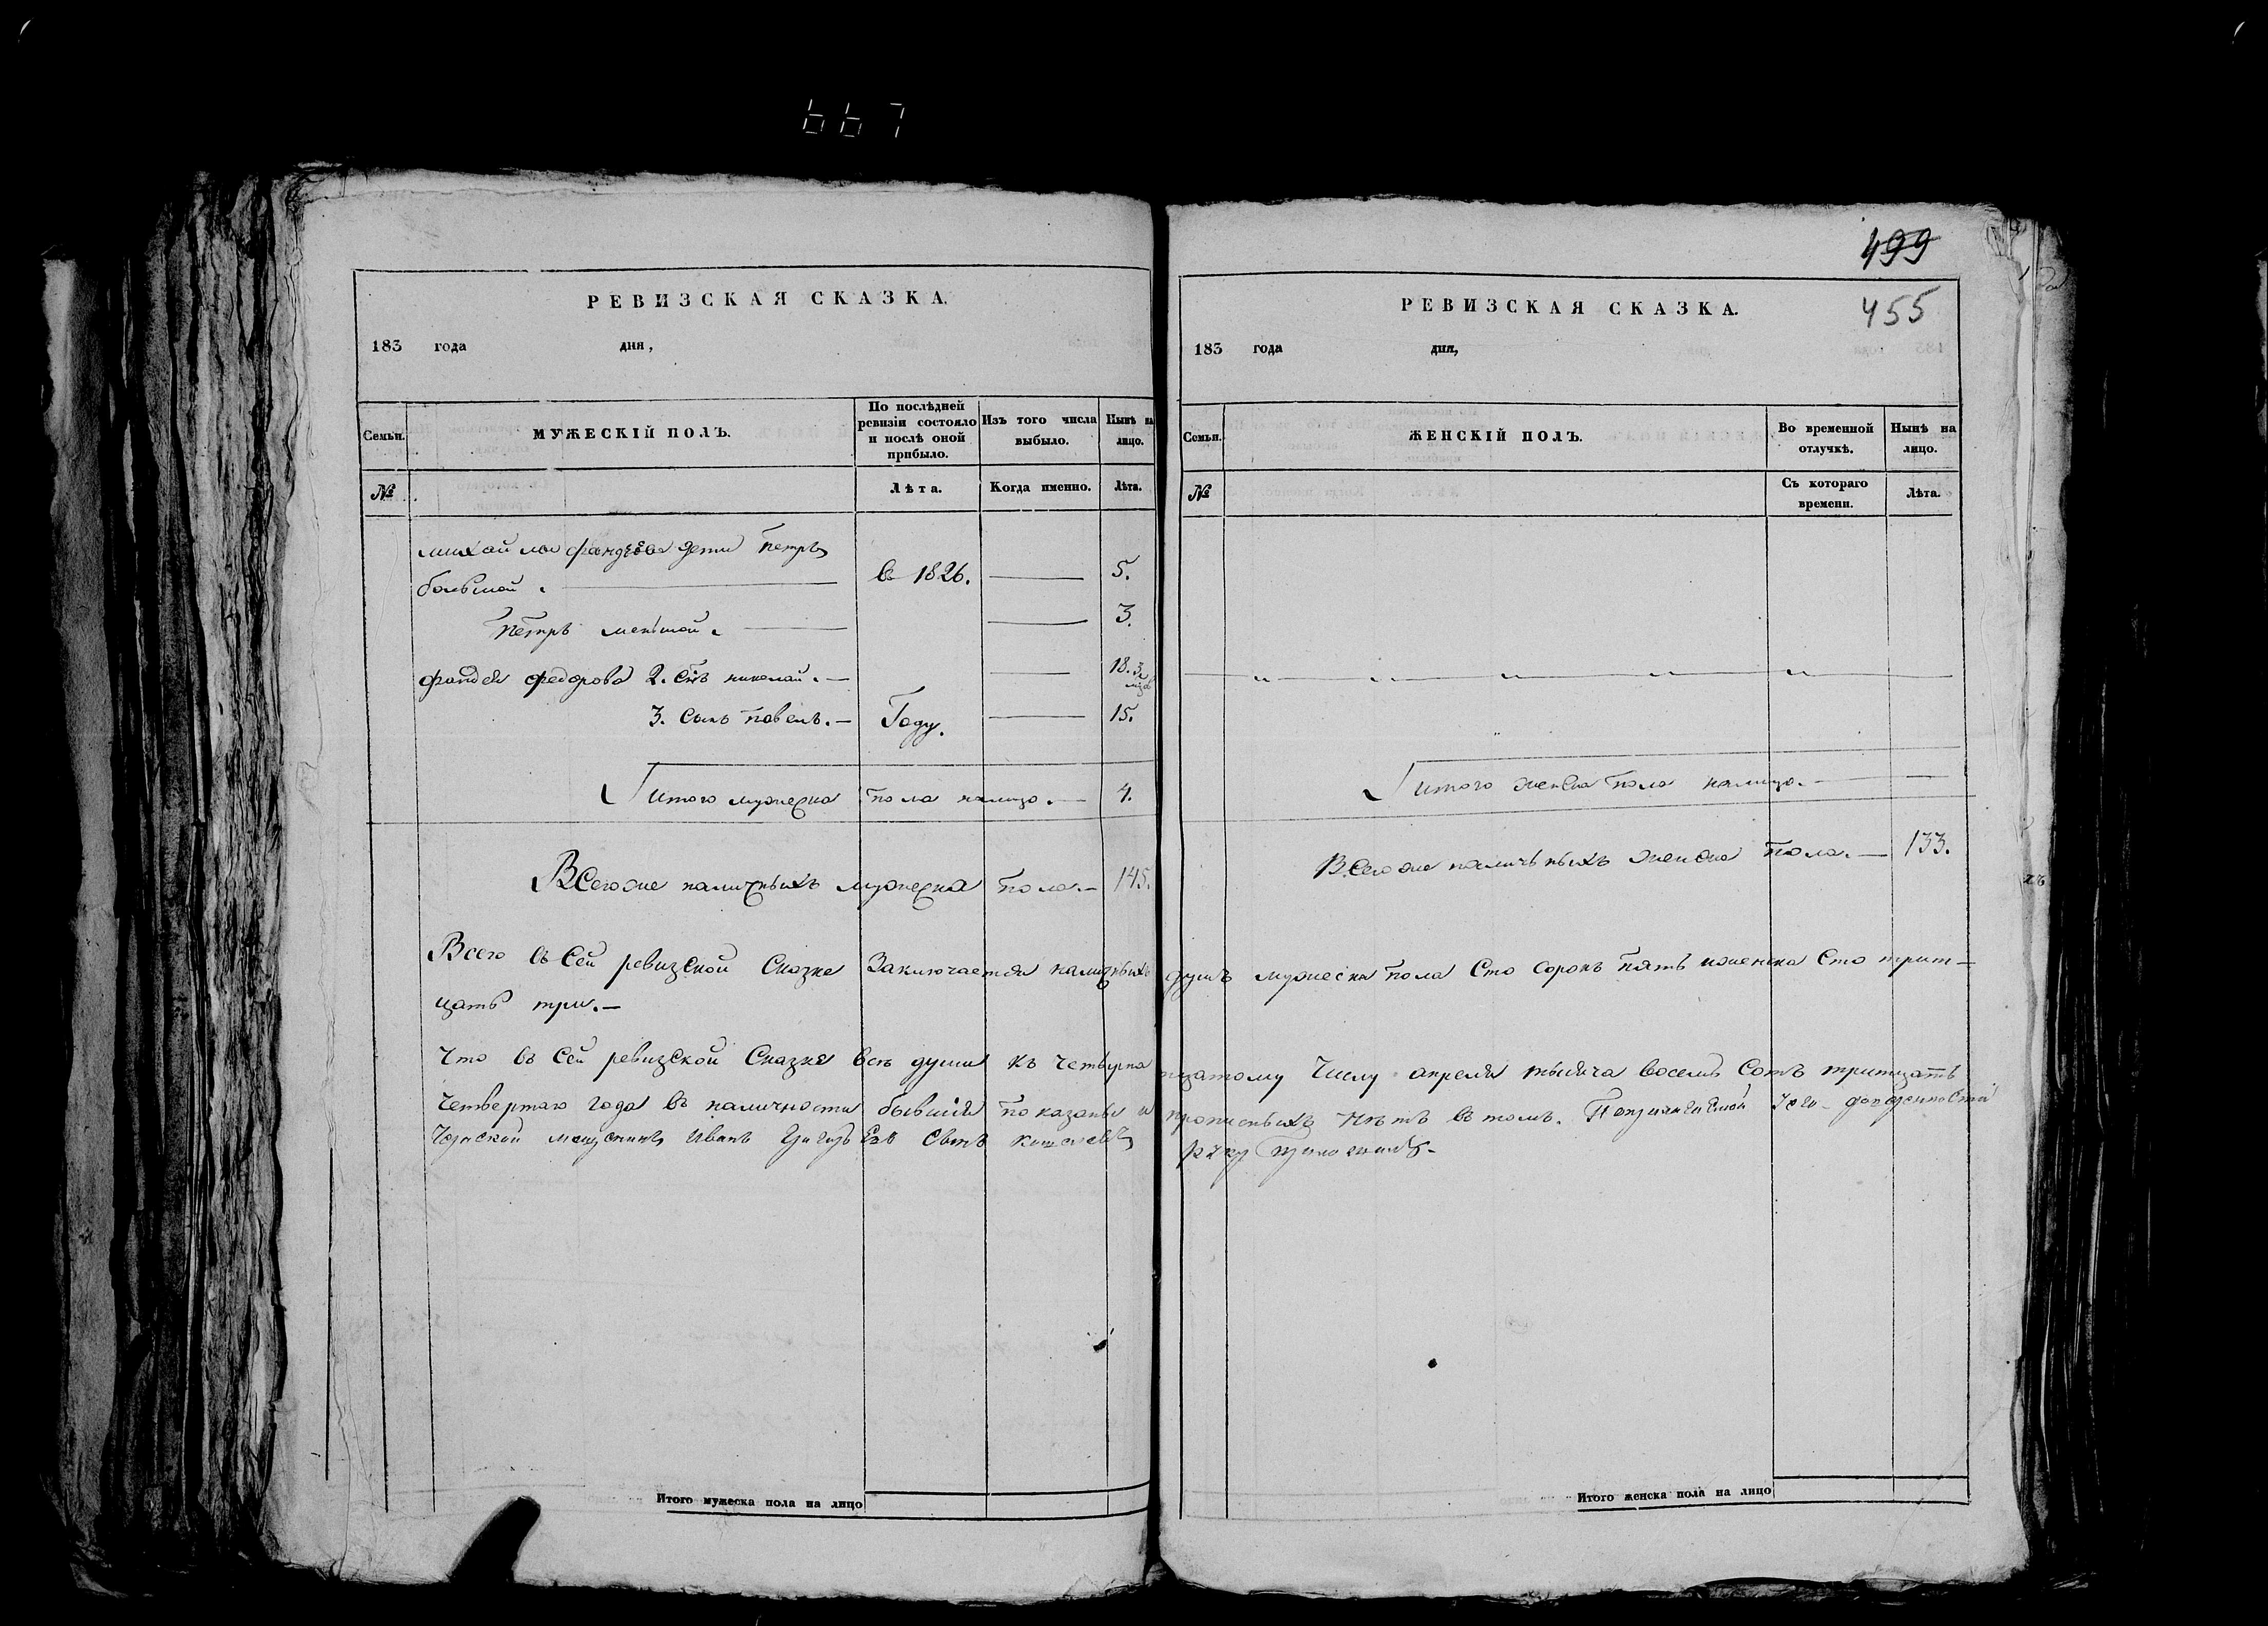 667
РЕВИЗСКАЯ СКАЗКА.
183 года дня,
Семьи. МУЖЕСКІЙ ПОЛЪ. По послѣдней ревизіи состояло и послѣ оной прибыло. Изъ того числа выбыло. Нынѣ на лицо.
№ Лѣта. Когда именно. Лѣта.
михайлы фандѣева дети Петръ
большой. в 1826. 5.
Петръ меньшой. 3.
фандея федорова 2. Сынъ николай. 18. 3
3. Сынъ Павелъ. Году. 15.
Итого мужеска пола налицо. 4.
Всегоже наличныхъ мужеска пола. 145.
499
455
РЕВИЗСКАЯ СКАЗКА.
183 года дня,
Семьи. ЖЕНСКІЙ ПОЛЪ. Во временной отлучкѣ. Нынѣ на лицо.
№ Съ котораго времени. Лѣта.
Итого женска пола налицо.
Всегоже наличныхъ женска пола. 133.
Всего въ Сей ревизской Сказке Заключается наличныхъ душъ мужеска пола Сто сорокъ пять иженска Сто трит-
цать три.
Что въ Сей ревизской Сказке всѣ души къ четырнадцатому Числу апреля тысяча восемь Сотъ тритцать
Четвертаго года въ наличности бывшия показаны и прописныхъ нѣтъ въ томъ.
мещенинъ Иванъ руку приложилъ.
Итого мужеска пола на лицо
Итого женска пола на лицо